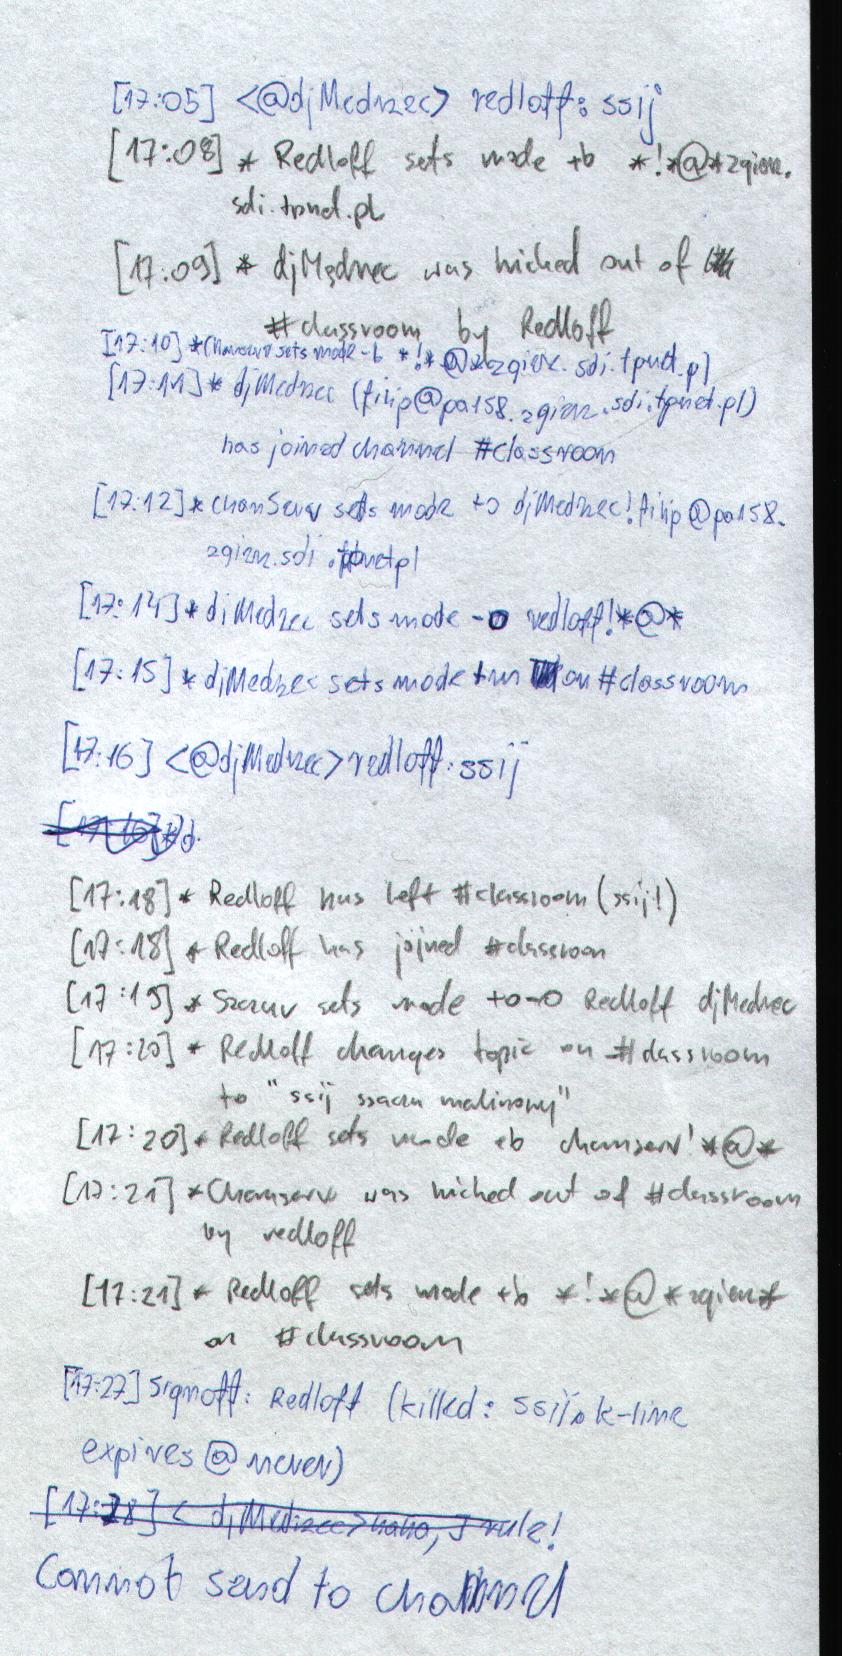 [17:05] <@djMedrzec> redloff: ssij
[17:08] * Redloff sets mode +b *!*@*zgierz.
sdi.tpnet.pl
[17:09] * djMędrzec was kicked out of
#classroom by Redloff
[17:10] *Chanserv sets mode -b *!*@*zgierz.sdi.tpnet.pl
[17:11] * djMedrzec (filip@pa158.zgierz.sdi.tpnet.pl)
has joined channel #classroom
[17:12] *ChanServ sets mode +o djMedrzec!filip@pa158.
zgierz.sdi.tpnet.pl
[17:14] *djMedrzec sets mode -o redloff!*@*
[17:15] *djMedrzec sets mode +m on #classroom
[17:16] <@djMedrzec> redloff: ssij
[17:16] *d
[17:18] * Redloff has left #classroom (ssij!)
[17:18] * Redloff has joined #classroom
[17:19] * sets mode +o-o Redloff djMedrzec
[17:20] * Redloff changes topic on #classroom
to "ssij malinowy"
[17:20] * Redloff sets mode +b chanserv!*@*
[17:21] *Chanserv was kicked out of #classroom
by redloff
[17:21] * Redloff sets mode +b *!*@*zgierz*
on #classroom
[17:27] Signoff: Redloff (killed: ssij. k-line
expires @ never)
[17:28] < djMedrzec> haha, I rule!
Cannot send to channel